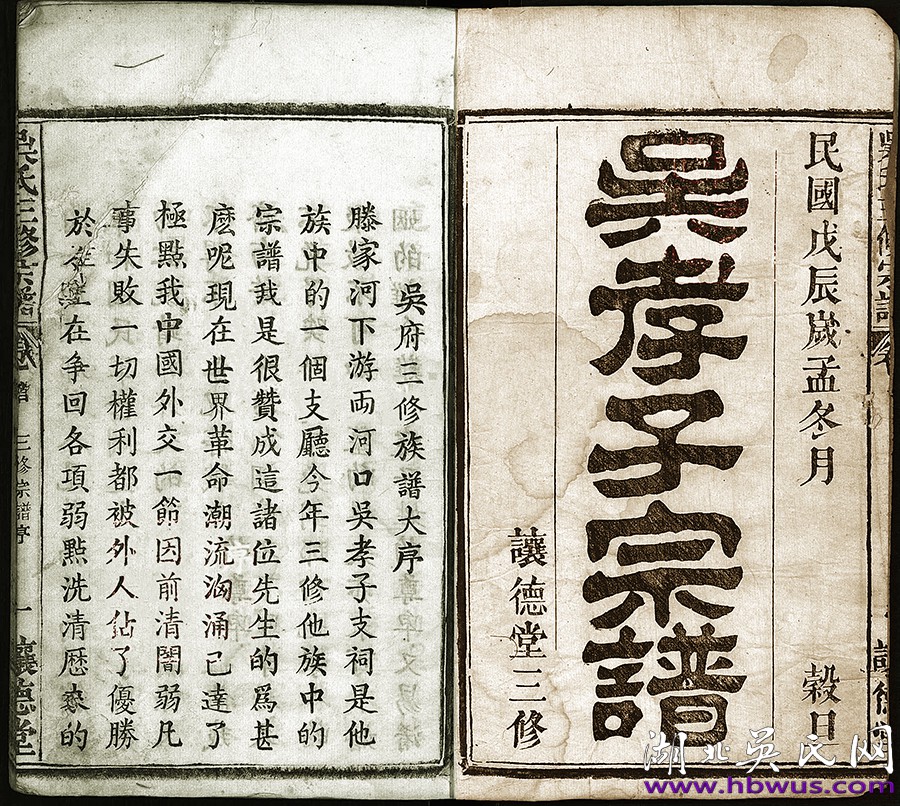 民國戊辰歲孟冬月 穀日
吳孝子宗譜
讓德堂三修
吳府三修族譜大序
滕家河下游両河口吳孝子支祠是他
族中的一個支廳今年三修他族中的
宗譜我是很贊成這諸位先生的爲甚
麽呢現在世界革命潮流洶涌已達了
極點我中國外交一節因前清闇弱凡
事失敗一切權利都被外人佔了優勝
於 在爭回各項弱點洗清歷來的
吳氏三修宗譜 三修宗譜序 一 讓德堂
湖北吳氏网
www.hbwus.com